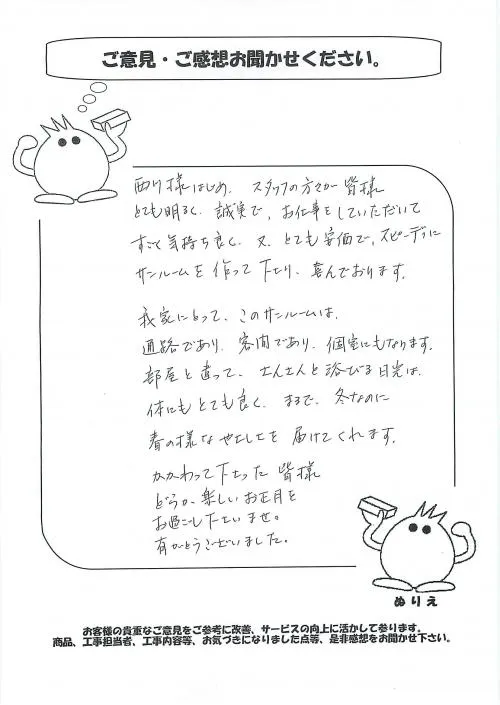 ご意見・ご感想お聞かせください。
様はじめ、スタッフの方々が皆様
とても明るく、誠実で、お仕事をしていただいて
すごく気持ち良く、又、とても安価で、スピーディに
サンルームを作って下さり、喜んでおります。
我家にとって、このサンルームは、
通路であり、客間であり、個室にもなります。
部屋と違って、さんさんと浴びる日光は、
体にもとても良く、まるで、冬なのに
春の様なやさしさを届けてくれます。
かかわって下さった皆様
どうか楽しいお正月を
お過ごし下さいませ。
有がとうございました。
ぬりえ
お客様の貴重なご意見をご参考に改善、サービスの向上に活かして参ります。
商品、工事担当者、工事内容等、お気づきになりました点等、是非感想をお聞かせ下さい。